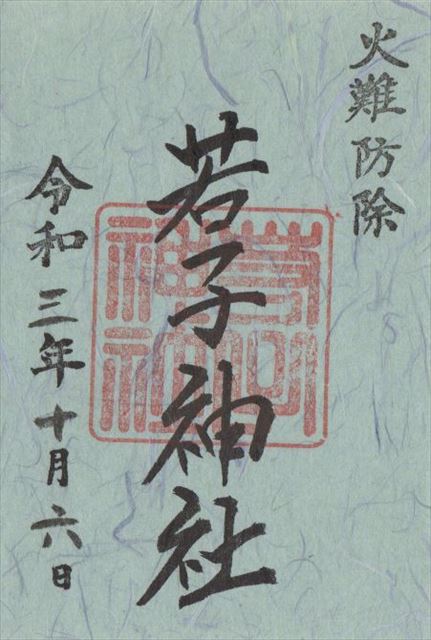 火難防除
若子神社
令和三年十月六日